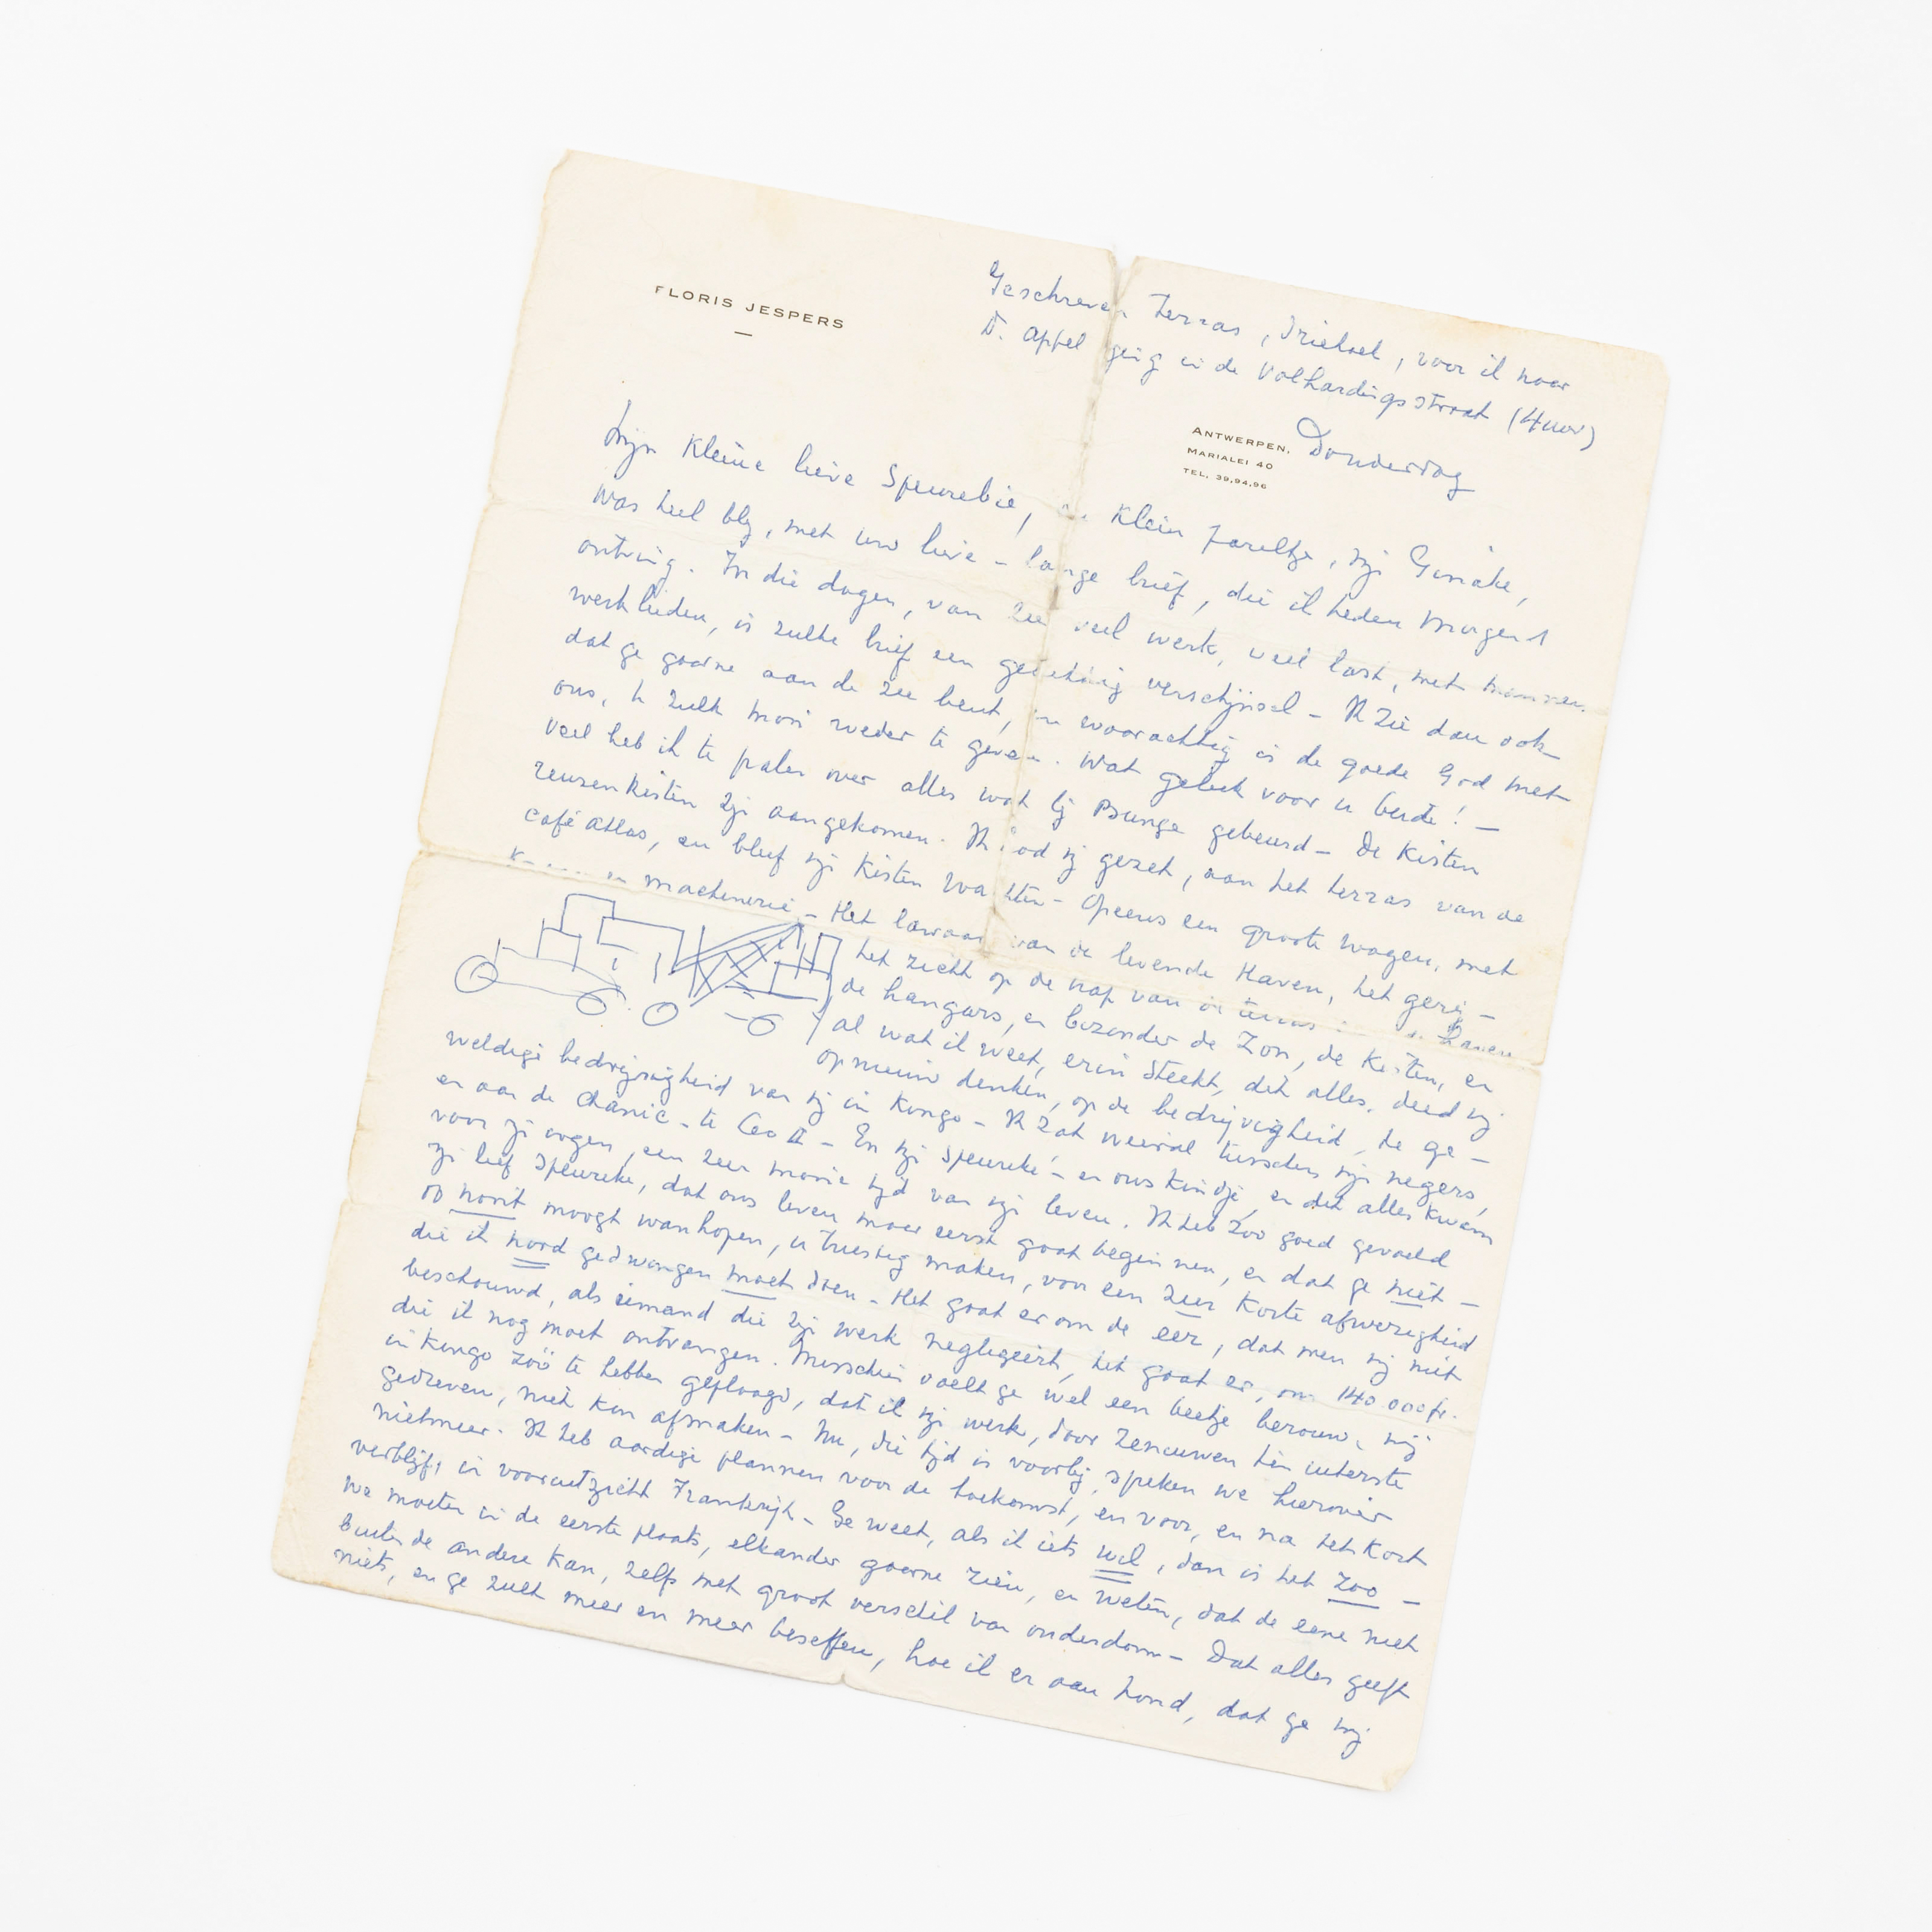 FLORIS JESPERS
Geschreven terras, Driehoek, voor ik naar
D. Appel ging in de Volhardingsstraat (4 uur)
ANTWERPEN,
MARIALEI 40
TEL. 39.94.96
Donderdag
Mijn kleine lieve Speurebie, klein zareltje, mijn
was heel blij, met uw lieve - lange brief, die ik heden morgen
ontving. In die dagen, van zeer veel werk, veel last, met
werklieden, is zulke brief een gelukkig verschijnsel - Ik zie dan ook
dat ge gaarne aan de zee bent, en waarachtig is de goede God met
ons, u zulk mooi weder te geven. Wat geluk voor u beide! -
Veel heb ik te palen over alles wat bij Bunge gebeurd - De kisten
reuzenkisten zijn aangekomen. Ik had mij gezet, aan het terras van de
café atlas, en bleef mijn kisten wachten - Opeens een groote wagen, met
machinerie - Het lawaai van de levende Haven, het gerij -
het zicht op de nap van de Haven
de hangars, en bezonder de Zon, de Kisten, en
al wat ik weet, erin steekt, dit alles, deed mij
opnieuw denken, op de bedrijvigheid, de ge -
weldige bedrijvigheid van mij in Kongo - Ik zat weeral tusschen mijn negers,
en aan de Chanic - te Leo II - En mijn speureke - en ons kindje, en dit alles kwam
voor mijn oogen, een zeer mooie tijd van mijn leven. Ik heb zoo goed gevoeld
mijn lief speureke, dat ons leven maar eerst gaat beginnen, en dat ge niet -
of nooit moogt wanhopen, u triestig maken, voor een zeer korte afwezigheid
die ik nood gedwongen moet doen - Het gaat er om de eer, dat men mij niet
beschouwd, als iemand die zijn werk neglegeert, het gaat er, om 140 000 fr.
die ik nog moet ontvangen. Misschien voelt ge wel een beetje berouw, mij
in Kongo zoo te hebben geplaagd, dat ik mijn werk, door zenuwen ten uiterste
gedreven, niet kon afmaken - Nu, die tijd is voorbij, spreken we hierover
nietmeer. Ik heb aardige plannen voor de toekomst, en voor, en na het kort
verblijf, in vooruitzicht Frankrijk - Ge weet, als ik iets wil, dan is het zoo -
We moeten in de eerste plaats, elkander gaarne zien, en weten, dat de eene niet
buiten de andere kan, zelfs met groot verschil van ouderdom - Dat alles geeft
niets, en ge zult meer en meer beseffen, hoe ik er aan houd, dat ge mij